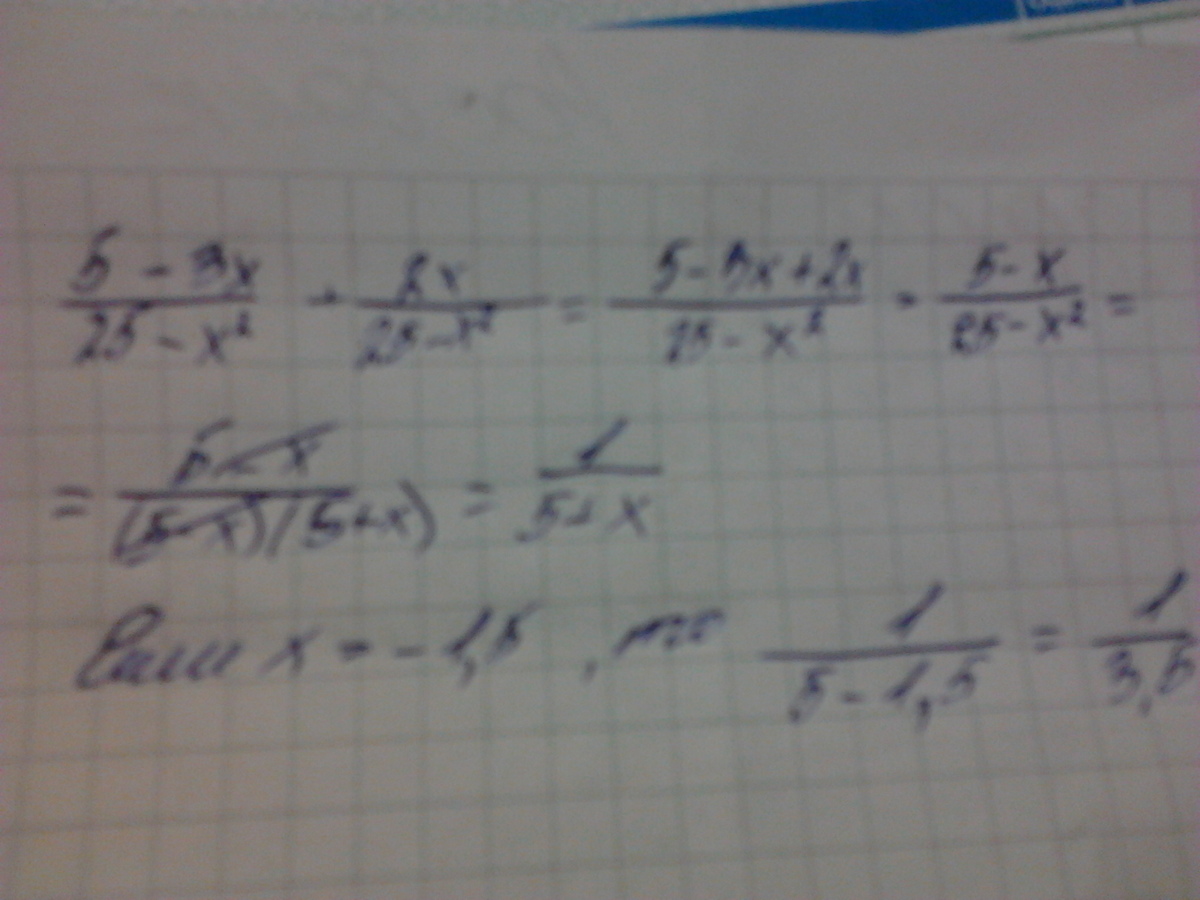 5 - 3x / 25 - x² + 2x / 25 - x² = 5 - 3x + 2x / 25 - x² = 5 - x / 25 - x² =
= 5 - x / (5 - x)(5 + x) = 1 / 5 + x
Если x = -1,5, то 1 / 5 - 1,5 = 1 / 3,5